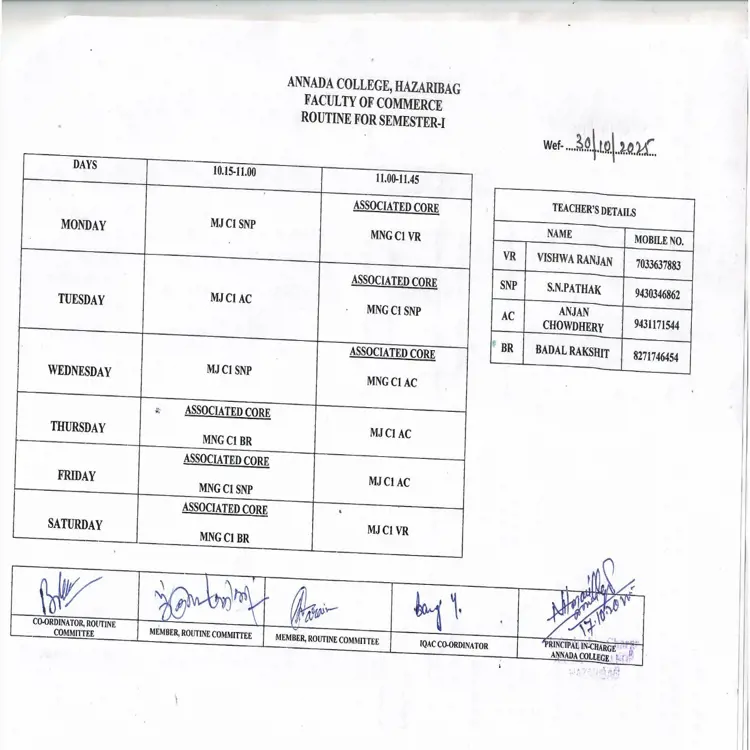 ANNADA COLLEGE, HAZARIBAG
FACULTY OF COMMERCE
ROUTINE FOR SEMESTER-I
Wef- 30/10/2025
DAYS 10.15-11.00 11.00-11.45
MONDAY MJ C1 SNP ASSOCIATED CORE
MNG C1 VR
TUESDAY MJ C1 AC ASSOCIATED CORE
MNG C1 SNP
WEDNESDAY MJ C1 SNP ASSOCIATED CORE
MNG C1 AC
THURSDAY ASSOCIATED CORE
MNG C1 BR MJ C1 AC
FRIDAY ASSOCIATED CORE
MNG C1 SNP MJ C1 AC
SATURDAY ASSOCIATED CORE
MNG C1 BR MJ C1 VR
TEACHER'S DETAILS
NAME MOBILE NO.
VR VISHWA RANJAN 7033637883
SNP S.N.PATHAK 9430346862
AC ANJAN
CHOWDHERY 9431171544
BR BADAL RAKSHIT 8271746454
CO-ORDINATOR, ROUTINE
COMMITTEE
MEMBER, ROUTINE COMMITTEE
MEMBER, ROUTINE COMMITTEE
IQAC CO-ORDINATOR
PRINCIPAL IN-CHARGE
ANNADA COLLEGE